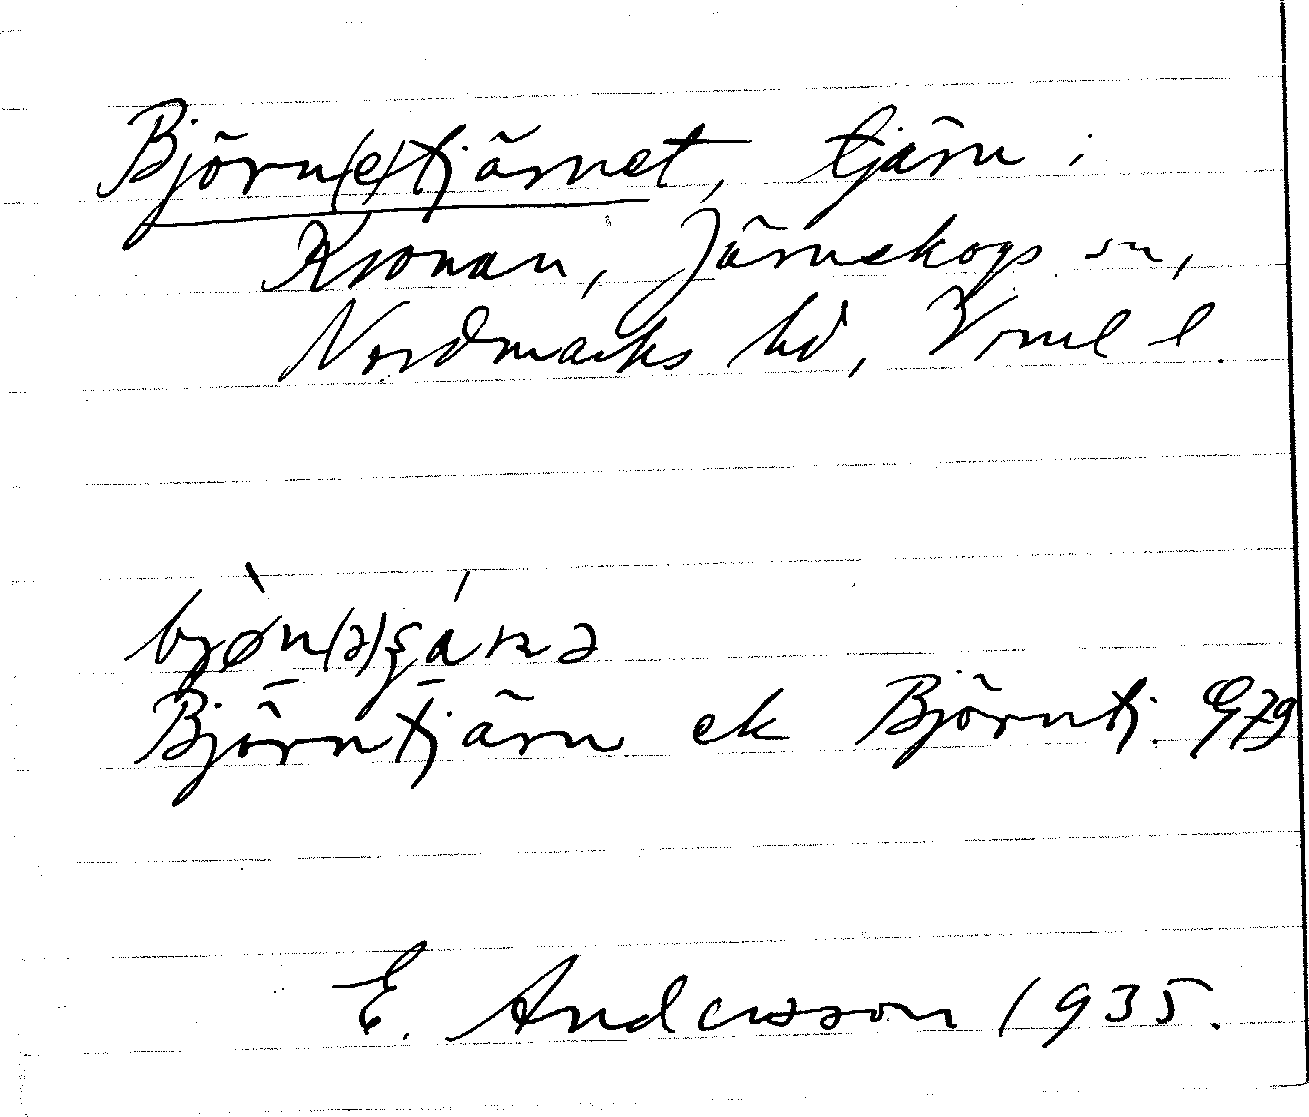 Björn(e)tjärnet, tjärn i
Kronan, Järnskogs sn,
Nordmarks hd, Vrml l.
bjø̀n(ə)ʂánə
Björntjärn ek Björntj. G79
E. Andersson 1935.